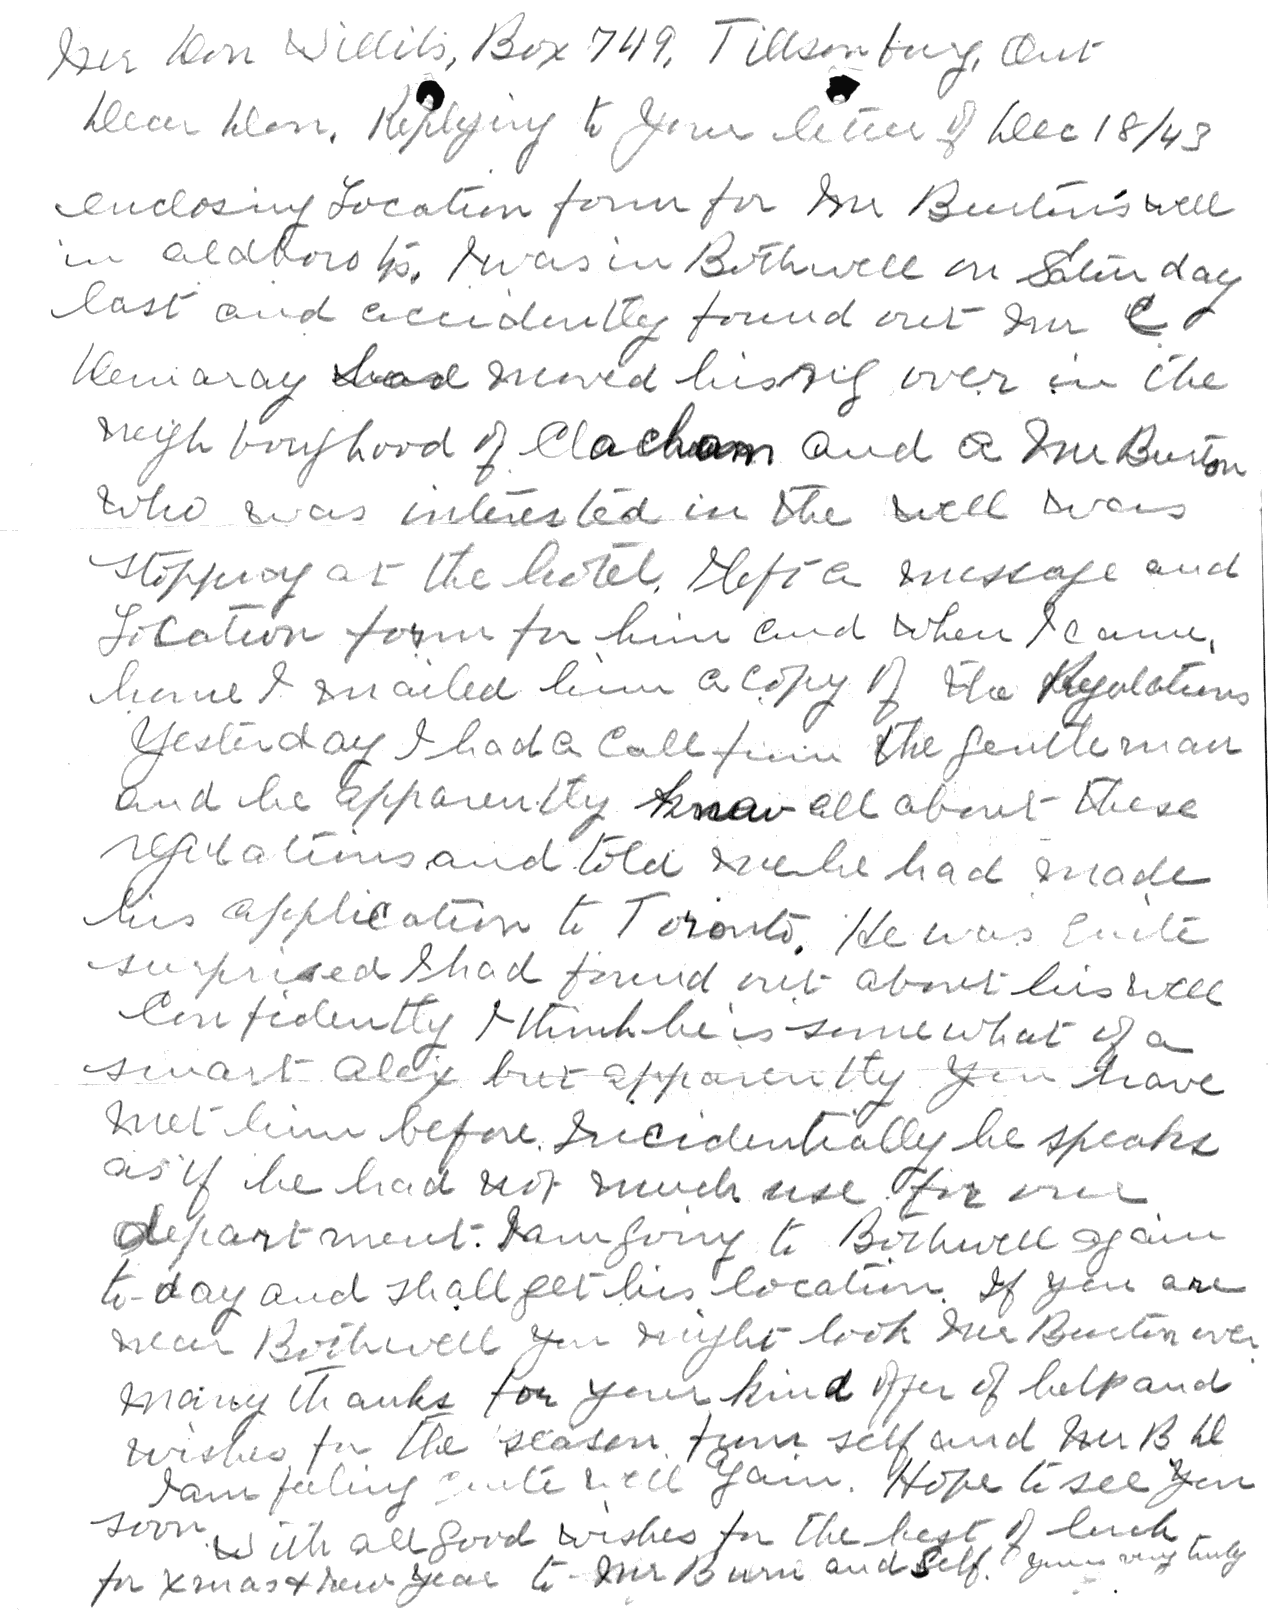 Mr Don Willits, Box 749, Tillsonburg, Ont
Dear Don, Replying to your letter of Dec 18/43
enclosing Location form for Mr Burton's well
in aldboro tp. I was in Bothwell on Saturday
last and accidently found out Mr C
Demaray had moved his rig over in the
neighbourghood of Clachan and a Mr Burton
who was interested in the well was
stopping at the hotel. I left a message and
Location form for him and when I came
home I mailed him a copy of the Regulations
Yesterday I had a call from the gentleman
and he apparently knew all about these
regulations and told me he had made
his application to Toronto. He was quite
surprised I had found out about his well
Confidently I think he is somewhat of a
smart alex but apparently you have
met him before. Incidentially he speaks
as if he had not much use for our
department. I am going to Bothwell again
to-day and shall get his location. If you are
near Bothwell you might look Mr Burton over
many thanks for your kind offer of help and
wishes for the season from self and Mr B D
I am feeling quite well again. Hope to see you
soon. With all good wishes for the best of luck
for xmas & new year to Mr Burn and self. yours very truly